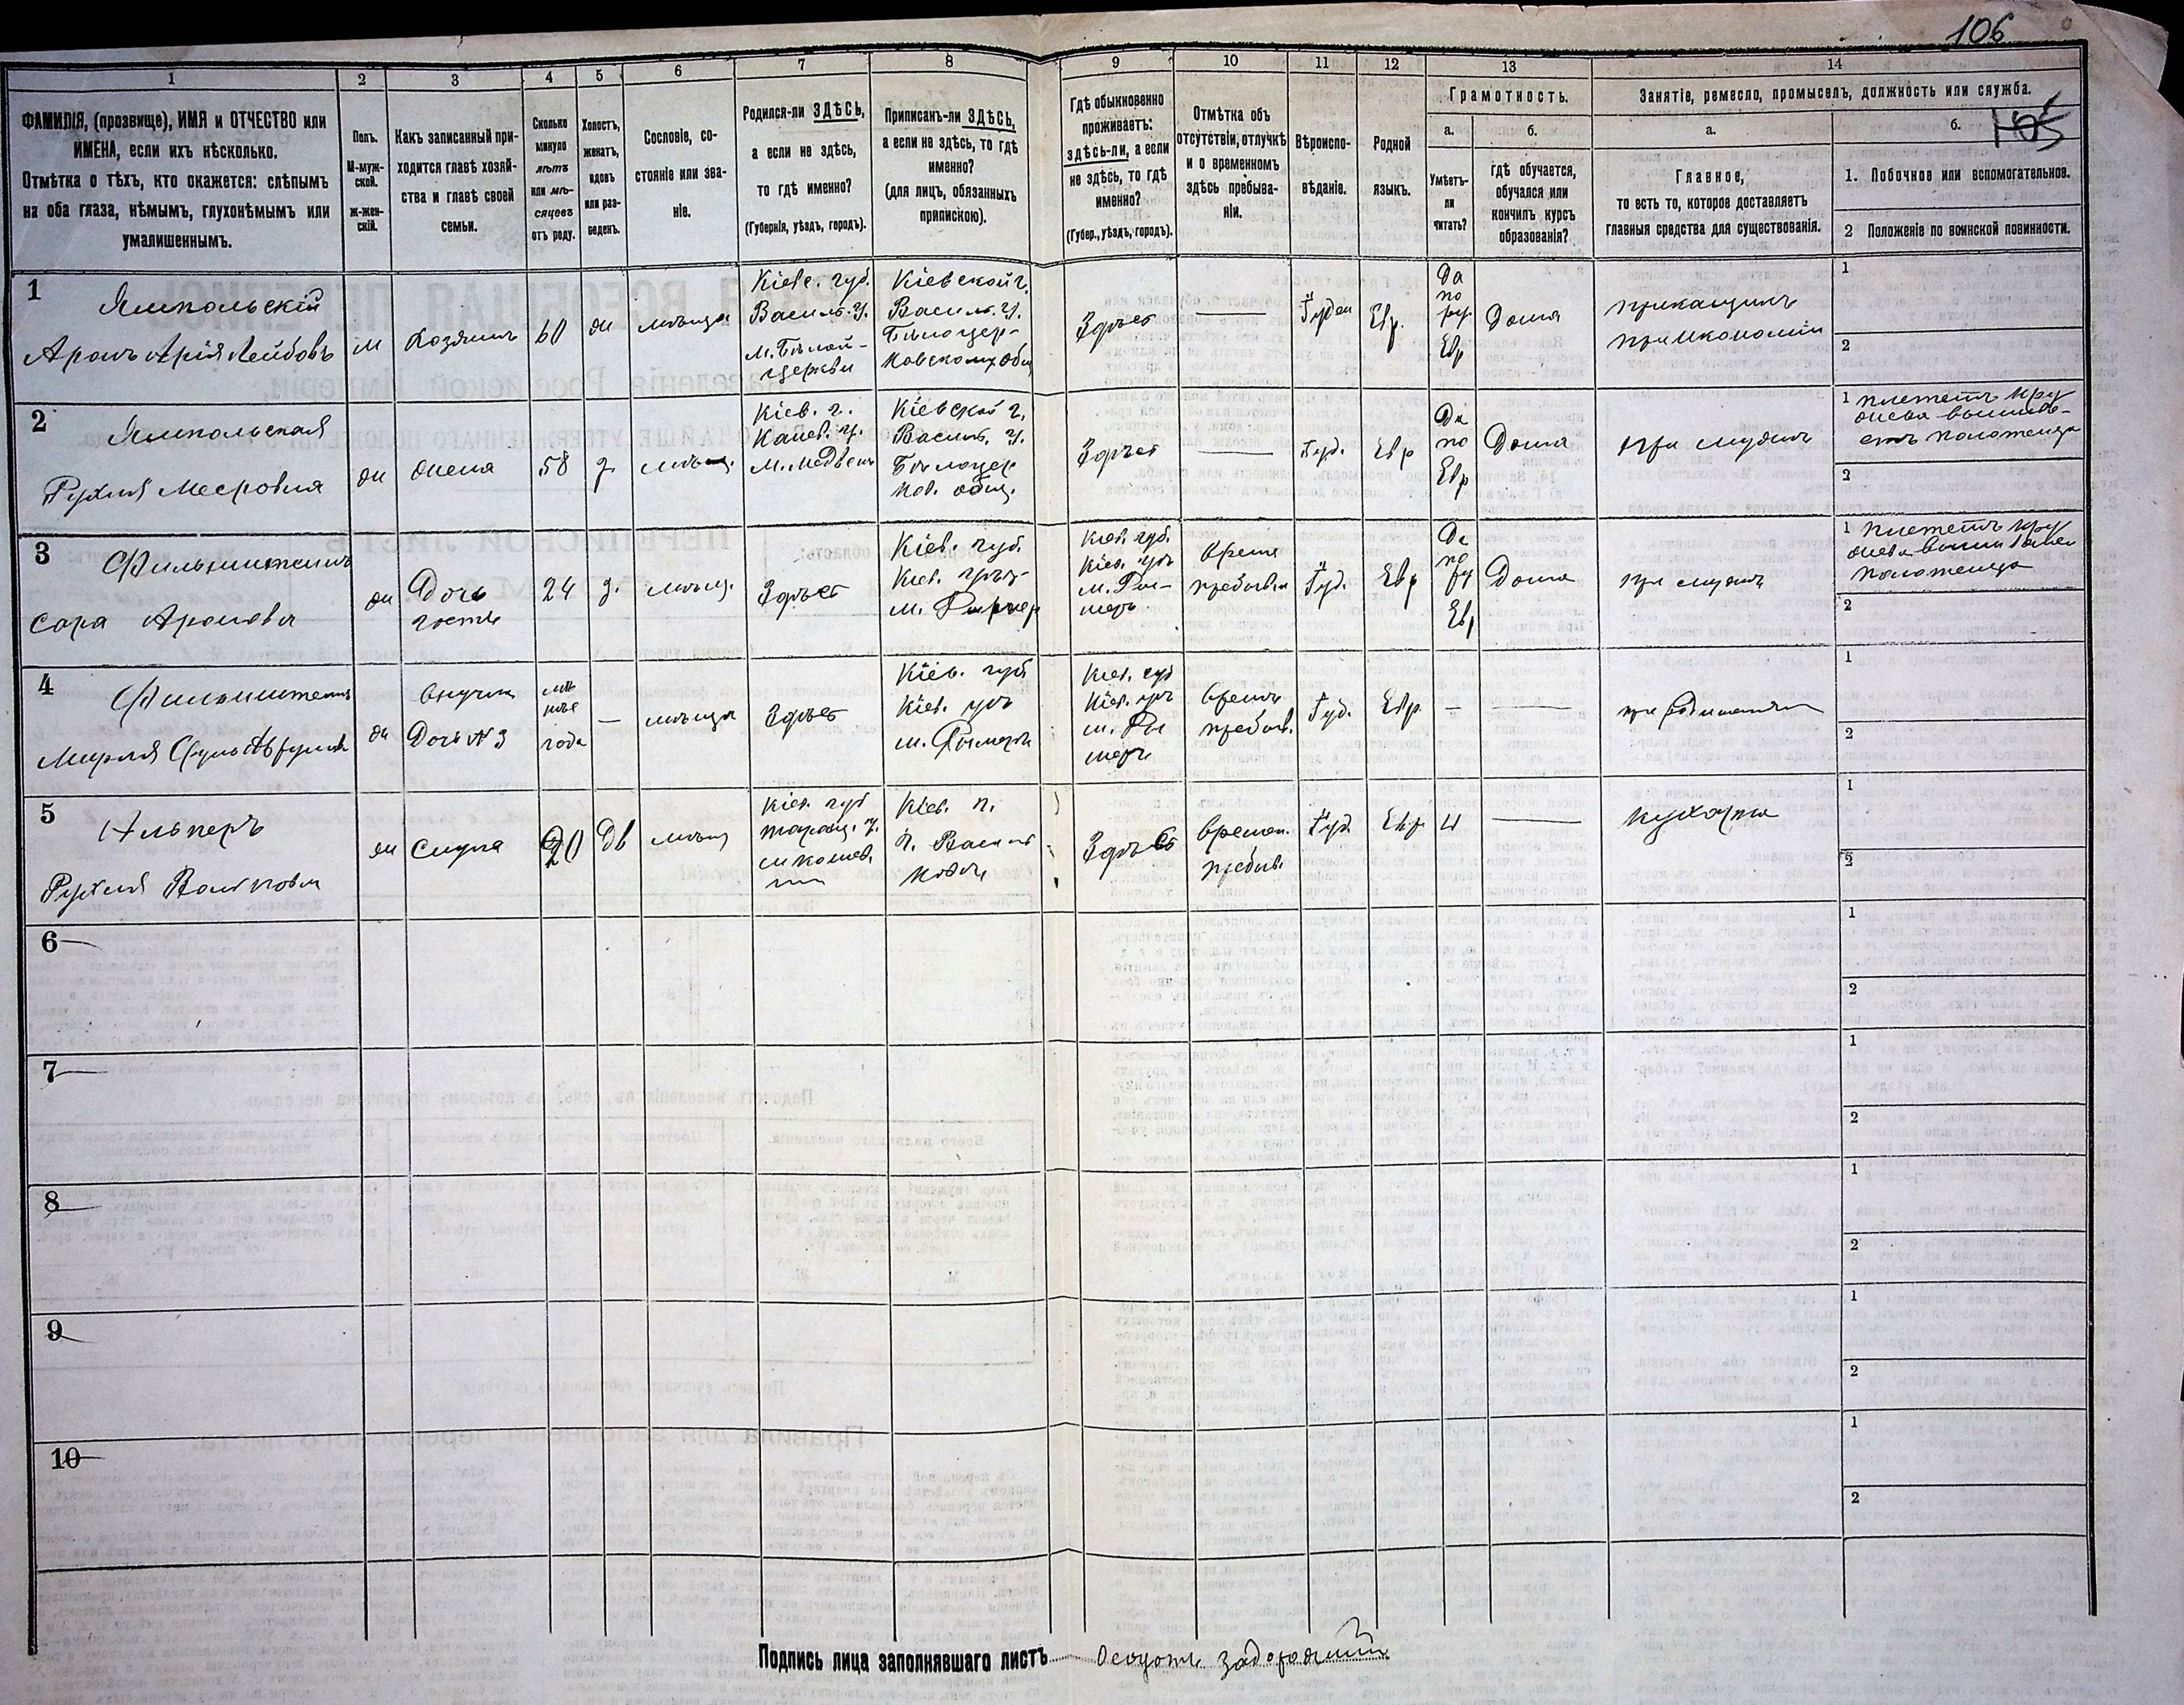 106
1 2 3 4 5 6 7 8 9 10 11 12 13 14
ФАМИЛІЯ, (прозвище), ИМЯ и ОТЧЕСТВО или
ИМЕНА, если ихъ нѣсколько.
Отмѣтка о тѣхъ, кто окажется: слѣпымъ
на оба глаза, нѣмымъ, глухонѣмымъ или
умалишеннымъ.
Полъ.
М-муж-
ской.
ж-жен-
скій.
Какъ записанный при-
ходится главѣ хозяй-
ства и главѣ своей
семьи.
Сколько
минуло
лѣтъ
или мѣ-
сяцевъ
отъ роду.
Холостъ,
женатъ,
вдовъ
или раз-
веденъ.
Сословіе, со-
стояніе или зва-
ніе.
Родился-ли ЗДѢСЬ,
а если не здѣсь,
то гдѣ именно?
(Губернія, уѣздъ, городъ).
Приписанъ-ли ЗДѢСЬ,
а если не здѣсь, то гдѣ
именно?
(для лицъ, обязанныхъ
припискою).
Гдѣ обыкновенно
проживаетъ:
здѣсь-ли, а если
не здѣсь, то гдѣ
именно?
(Губер., уѣздъ, городъ).
Отмѣтка объ
отсутствіи, отлучкѣ
и о временномъ
здѣсь пребыва-
ніи.
Вѣроиспо-
вѣданіе.
Родной
языкъ.
Грамотность.
а.
Умѣетъ-
ли
читать?
б.
гдѣ обучается,
обучался или
кончилъ курсъ
образованія?
Занятіе, ремесло, промыселъ, должность или служба.
а.
Главное,
то есть то, которое доставляетъ
главныя средства для существованія.
б.
105
1. Побочное или вспомогательное.
2 Положеніе по воинской повинности.
1
Ямпольскій
Аронъ Арія Лейбовъ
м
Хозяинъ
60
ж
мѣщан
Кіевс. губ.
Василь. у.
м. Бѣлой-
Церкви
Кіевской г.
Василь. у.
Бѣлоцер-
ковском. общ
Здѣсь
Іудей
Евр.
Да
по
рус.
Евр
Дома
прикащикъ
при экономіи
1
2
2
Ямпольская
Рухля Мееровна
ж
жена
58
з.
мѣщ.
Кіев. г.
Канев. у.
м. Медвен
Кіевской г.
Василь. у.
Бѣлоцер
ков. общ.
Здѣсь
Іуд.
Евр
Да
по
Евр
Дома
при мужѣ
1 плететъ кру
жева вышива-
етъ полотенца
2
3
Сара Аронова
ж
Дочь
гостья
24
з.
мѣщ.
Здѣсь
Кіев. губ.
Кіев. уѣз-
м. Дымер
Кіев. губ.
Кіев. уѣз
м. Ды-
меръ
Время
пребыв.
Іуд.
Евр
Да
по
ру
Евр
Дома
при мужѣ
1 плететъ кру
жева вышивает
полотенца
2
4
ж
внучка
Дочь №3
года
—
мѣщан
Здѣсь
Кіев. губ
Кіев. уѣз
м. Дымеръ
Кіев. губ
Кіев. уѣз
м. Ды
меръ
Времен
пребыв.
Іуд.
Евр.
—
при родителях
1
2
5
Альперъ
Рухля Волькова
ж
Слуга
20
дв
мѣщ
Кіев. губ
Таращ. у.
Кіев. г.
г. Василь
ковъ
Здѣсь
времен.
пребыв.
Іуд.
Евр
Н
кухарка
1
2
6
1
2
7
1
2
8
1
2
9
1
2
10
1
2
Подпись лица заполнявшаго листъ